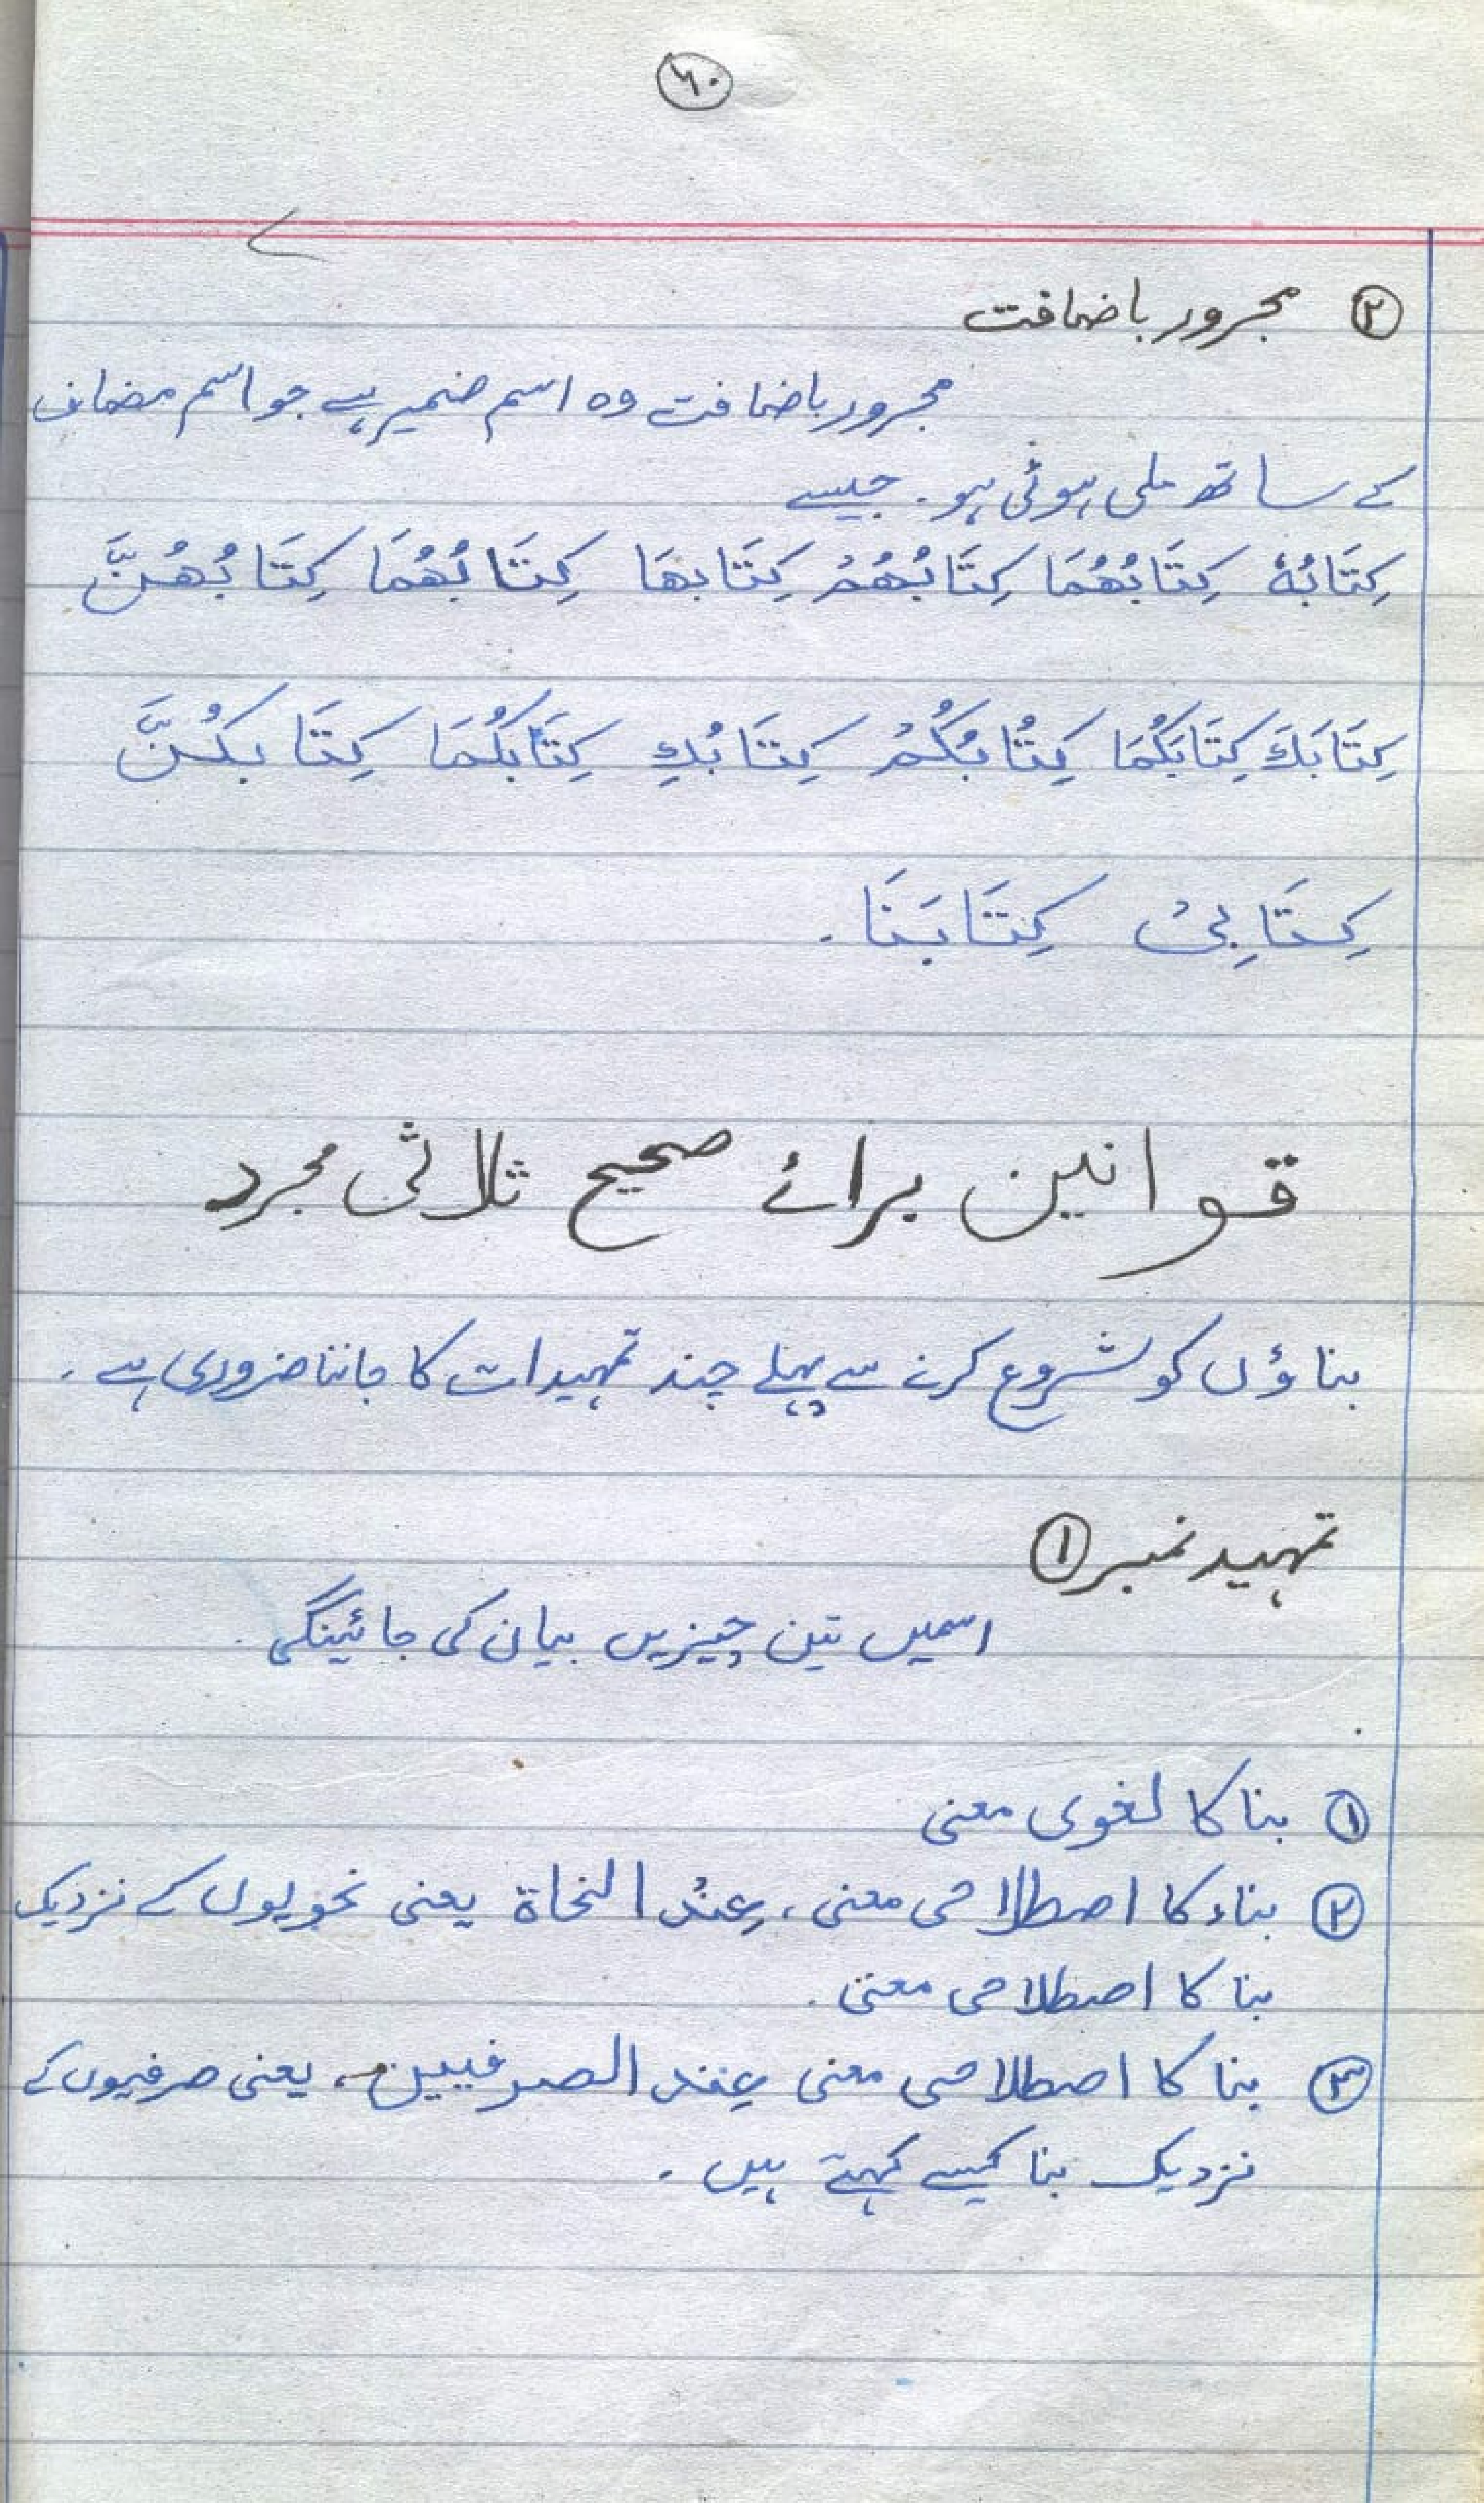 ۶۰
۲ مجرور باضافت
مجرور باضافت وہ اسم ضمیر ہے جو اسم مضاف
کے ساتھ ملی ہوئی ہو۔ جیسے
كِتَابُهٗ كِتَابُهُمَا كِتَابُهُمْ كِتَابهَا كِتَابُهُمَا كِتَابُهُنَّ
كِتَابَكَ كِتَابَكُمَا كِتُابُكُمْ كِتَابُكِ كِتَابَكُمَا كِتَابكُنَّ
كِتَابِیْ كِتَابَنَا۔
قوانین برائے صحیح ثلاثی مجرد
بناؤں کو شروع کرنے سے پہلے چند تمہیدات کا جاننا ضروری ہے۔
تمہید نمبر ۱
اسمیں تین چیزیں بیان کی جائینگی۔
۱ بنا کا لغوی معنی
۲ بناء کا اصطلاحی معنی، عِنْد النحاة یعنی نحویوں کے نزدیک
بنا کا اصطلاحی معنی۔
۳ بنا کا اصطلاحی معنی عِند الصرفیین، یعنی صرفیوں کے
نزدیک بنا کیسے کہتے ہیں۔